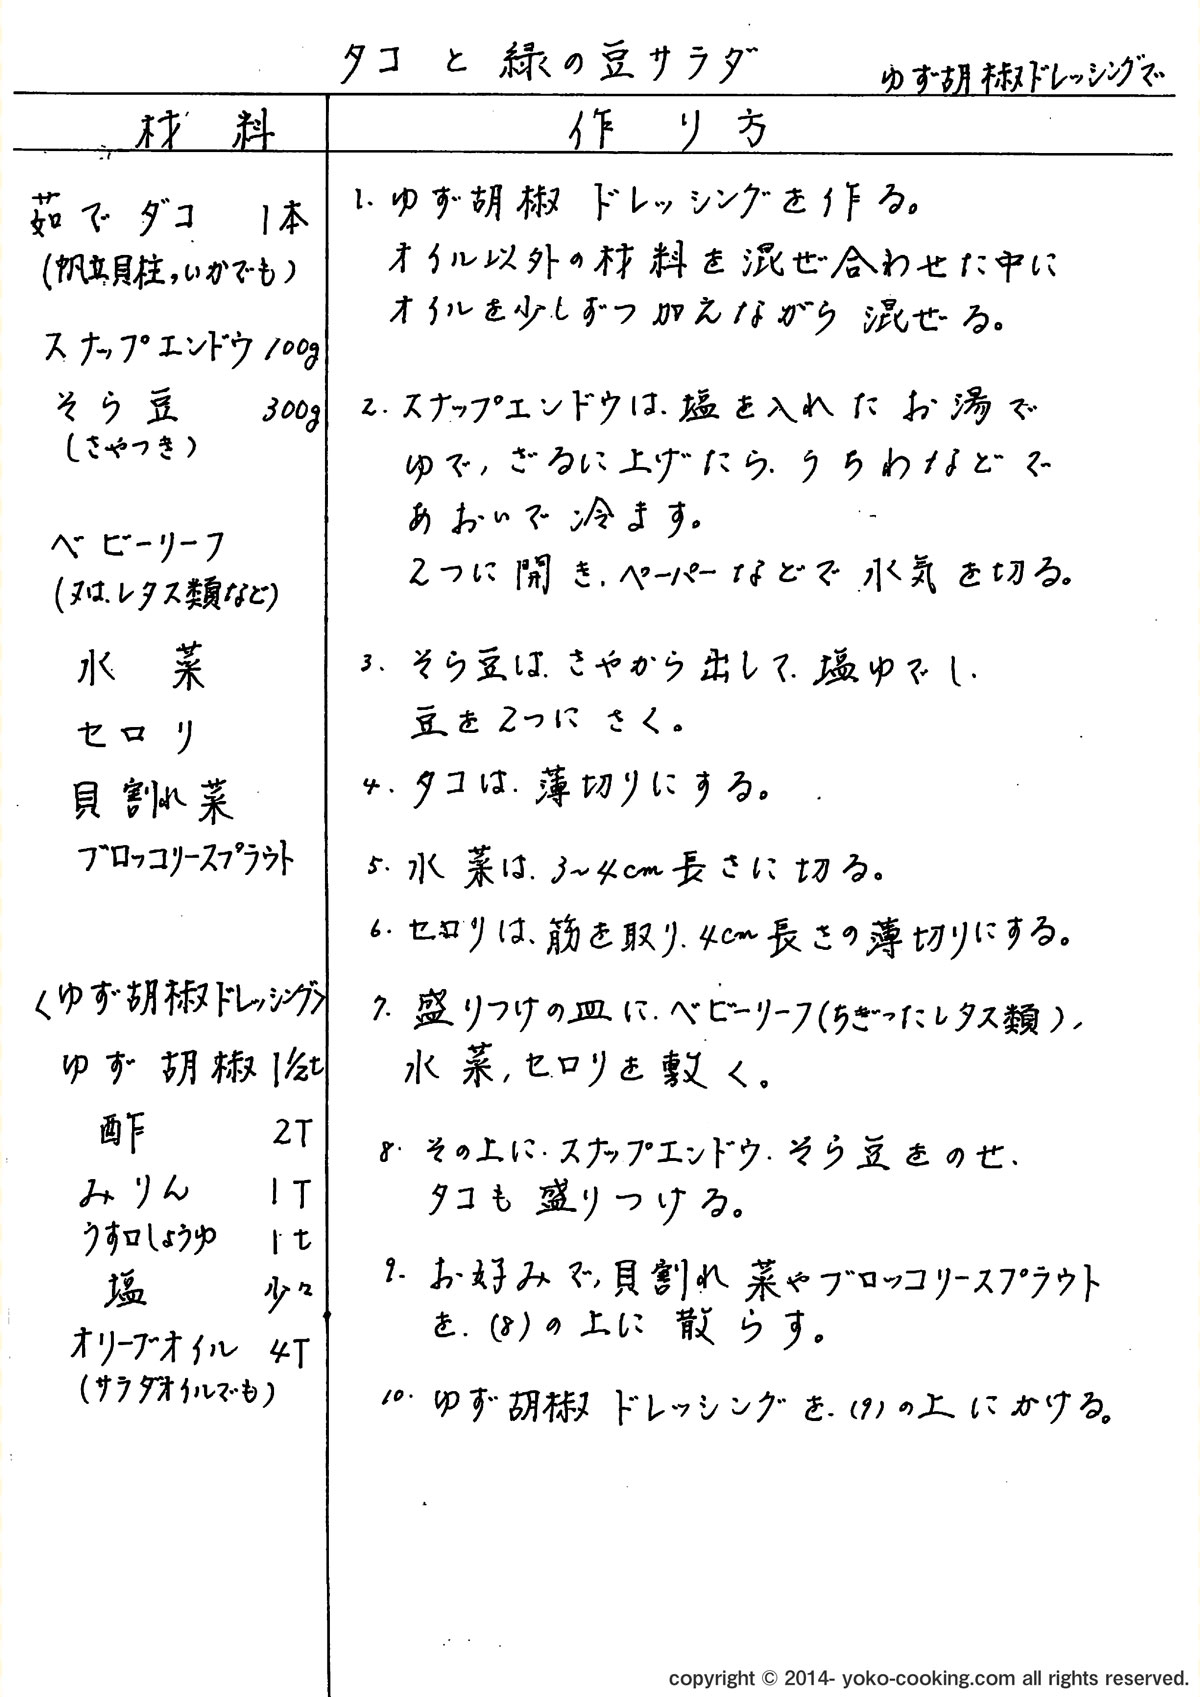 タコと緑の豆サラダ
ゆず胡椒ドレッシングで
材料
作り方
茹でダコ 1本
(帆立貝柱,いかでも)
スナップエンドウ 100g
そら豆 300g
(さやつき)
ベビーリーフ
(又は、レタス類など)
水菜
セロリ
貝割れ菜
ブロッコリースプラウト
<ゆず胡椒ドレッシング>
ゆず胡椒 1/2t
酢 2T
みりん 1T
うす口しょうゆ 1t
塩 少々
オリーブオイル 4T
(サラダオイルでも)
1. ゆず胡椒ドレッシングを作る。
オイル以外の材料を混ぜ合わせた中に
オイルを少しずつ加えながら混ぜる。
2. スナップエンドウは、塩を入れたお湯で
ゆで,ざるに上げたら、うちわなどで
あおいで冷ます。
2つに開き、ペーパーなどで水気を切る。
3. そら豆は、さやから出して、塩ゆでし、
豆を2つにさく。
4. タコは、薄切りにする。
5. 水菜は、3~4cm長さに切る。
6. セロリは、筋を取り、4cm長さの薄切りにする。
7. 盛りつけの皿に、ベビーリーフ(ちぎったレタス類),
水菜,セロリを敷く。
8. その上に、スナップエンドウ、そら豆をのせ、
タコも盛りつける。
9. お好みで,貝割れ菜やブロッコリースプラウト
を、(8)の上に散らす。
10. ゆず胡椒ドレッシングを、(9)の上にかける。
copyright © 2014- yoko-cooking.com all rights reserved.